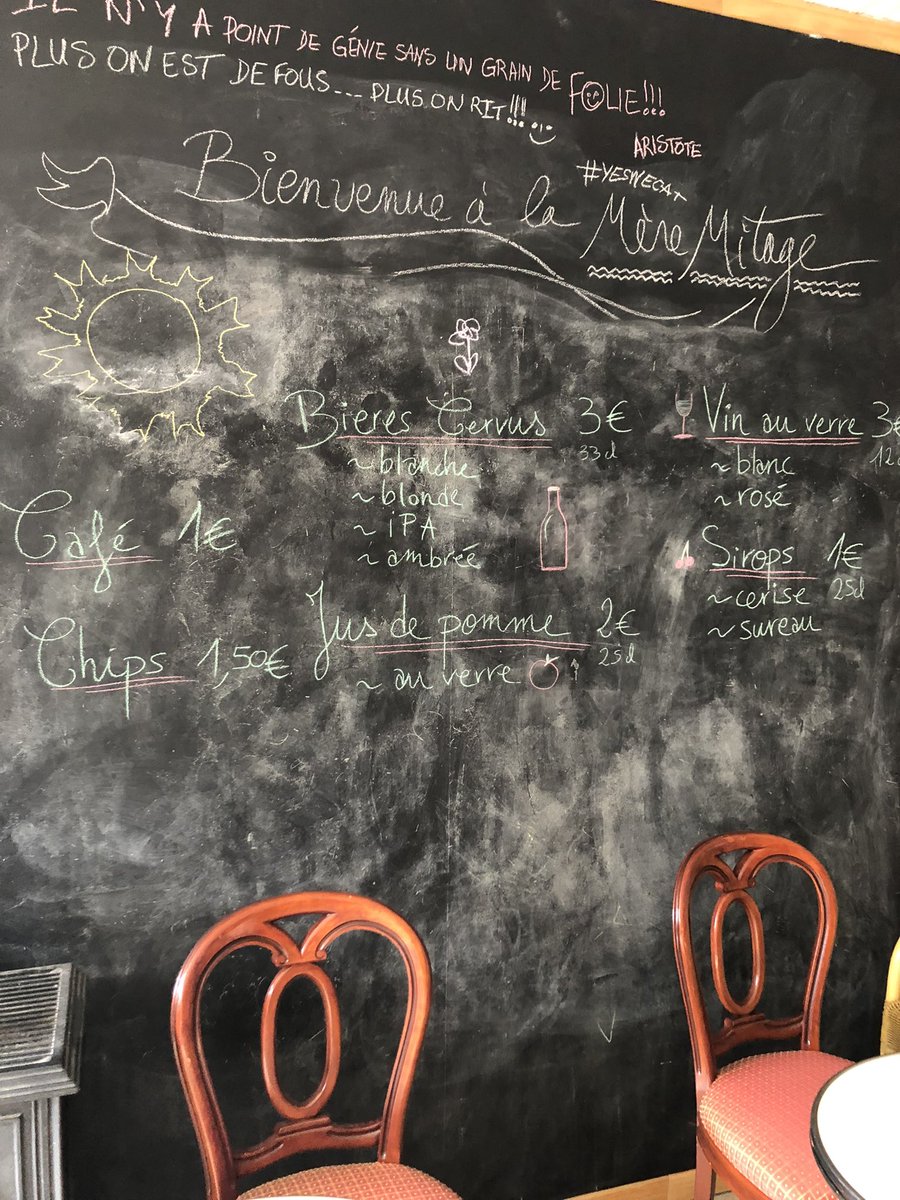 IL N'Y A POINT DE GÉNIE SANS UN GRAIN DE FOLIE!!!
PLUS ON EST DE FOUS... PLUS ON RIT!!!
ARISTOTE
#YESWECAT
Bienvenue à la Mère Mitage
Bières Cervus 3€
33cl
~ blanche
~ blonde
~ IPA
~ ambrée
Vin au verre 3€
12c
~ blanc
~ rosé
Café 1€
Sirops 1€
25cl
~ cerise
~ sureau
Chips 1,50€
Jus de pomme 2€
25cl
~ au verre